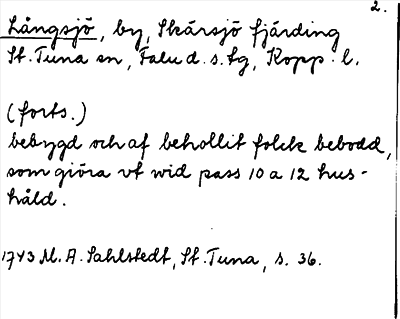 2.
Långsjö, by, Skärsjö fjärding
St. Tuna sn, Falu d. s. fg, Kopp. l.
(forts.)
bebygd och af behollit folck bebodd,
som giöra vt wid pass 10 a 12 hus-
håld.
1743 M. A. Sahlstedt, St. Tuna, s. 36.